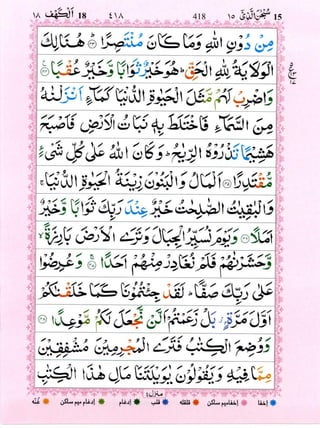 ١٨ الْكَهْف 18 ٤١٨ 418 سُبْحٰنَ الَّذِیْ ١٥ 15
مِنْ دُوْنِ اللّٰهِ وَمَا كَانَ مُنْتَصِرًا ﴿٤٣﴾ هُنَالِكَ
الْوَلَایَةُ لِلّٰهِ الْحَقِّ ؕ هُوَ خَیْرٌ ثَوَابًا وَّخَیْرٌ عُقْبًا ﴿٤٤﴾
وَاضْرِبْ لَهُمْ مَّثَلَ الْحَیٰوةِ الدُّنْیَا كَمَآءٍ اَنْزَلْنٰهُ
مِنَ السَّمَآءِ فَاخْتَلَطَ بِهٖ نَبَاتُ الْاَرْضِ فَاَصْبَحَ
هَشِیْمًا تَذْرُوْهُ الرِّیٰحُ ؕ وَكَانَ اللّٰهُ عَلٰی كُلِّ شَیْءٍ
مُّقْتَدِرًا ﴿٤٥﴾ اَلْمَالُ وَالْبَنُوْنَ زِیْنَةُ الْحَیٰوةِ الدُّنْیَا ۚ
وَالْبٰقِیٰتُ الصّٰلِحٰتُ خَیْرٌ عِنْدَ رَبِّكَ ثَوَابًا وَّخَیْرٌ
اَمَلًا ﴿٤٦﴾ وَیَوْمَ نُسَیِّرُ الْجِبَالَ وَتَرَی الْاَرْضَ بَارِزَةً ۙ
وَّحَشَرْنٰهُمْ فَلَمْ نُغَادِرْ مِنْهُمْ اَحَدًا ﴿٤٧﴾ وَعُرِضُوْا
عَلٰی رَبِّكَ صَفًّا ؕ لَقَدْ جِئْتُمُوْنَا كَمَا خَلَقْنٰكُمْ
اَوَّلَ مَرَّةٍ ؗ بَلْ زَعَمْتُمْ اَلَّنْ نَّجْعَلَ لَكُمْ مَّوْعِدًا ﴿٤٨﴾
وَوُضِعَ الْكِتٰبُ فَتَرَی الْمُجْرِمِیْنَ مُشْفِقِیْنَ
مِمَّا فِیْهِ وَیَقُوْلُوْنَ یٰوَیْلَتَنَا مَالِ هٰذَا الْكِتٰبِ
منزل ٤
اخفا اخفا میم ساکن قلقله قلب ادغام ادغام میم ساکن غنّه